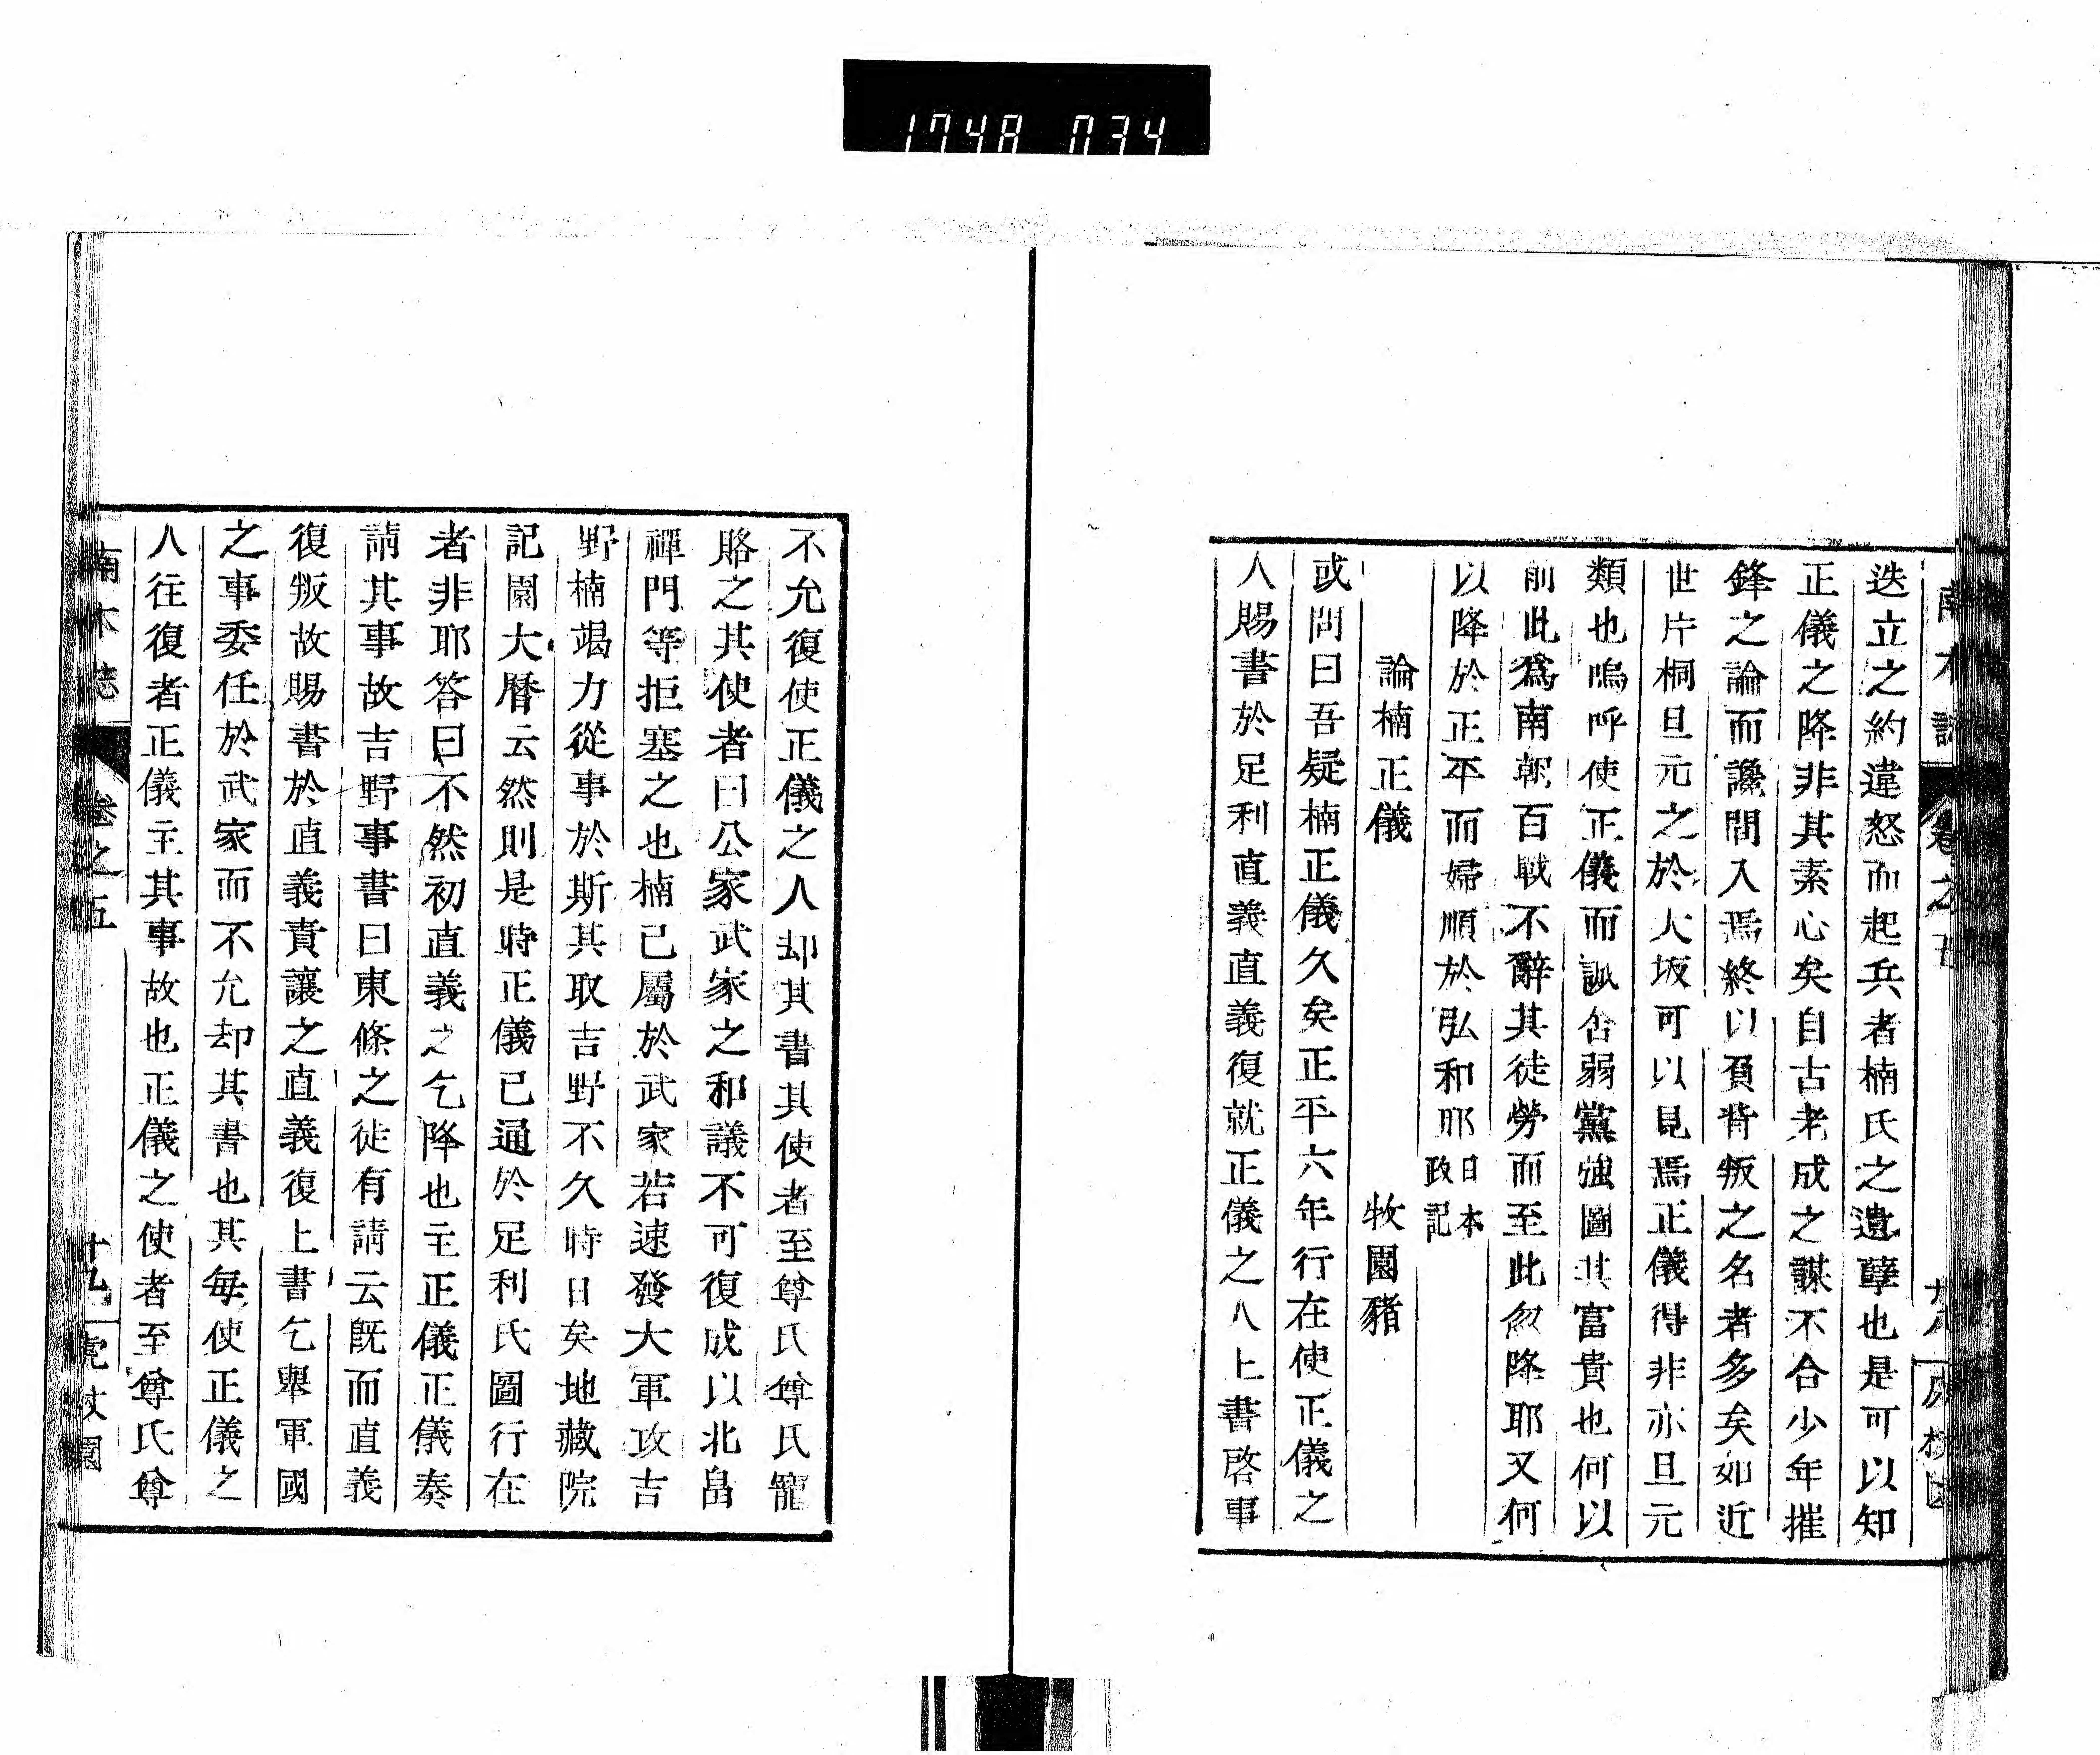 1748 034
迭立之約違怒而起兵者楠氏之遺孽也是可以知
正儀之降非其素心矣自古老成之謀不合少年摧
鋒之論而讒間入焉終以負背叛之名者多矣如近
世片桐旦元之於大坂可以見焉正儀得非亦旦元
類也嗚呼使正儀而訿呰弱黨強圖其富貴也何以
前此爲南朝百戰不辭其徒勞而至此忽降耶又何
以降於正平而婦順於弘和耶日本
政記
論楠正儀　牧園豬
或問曰吾疑楠正儀久矣正平六年行在使正儀之
人賜書於足利直義直義復就正儀之人上書啓事
不允復使正儀之人却其書其使者至尊氏尊氏寵
賂之其使者曰公家武家之和議不可復成以北畠
禪門等拒塞之也楠已屬於武家若速發大軍攻吉
野楠竭力從事於斯其取吉野不久時日矣地藏院
記園大曆云然則是時正儀已通於足利氏圖行在
者非耶答曰不然初直義之乞降也主正儀正儀奏
請其事故吉野事書曰東條之徒有請云旣而直義
復叛故賜書於直義責讓之直義復上書乞擧軍國
之事委任於武家而不允却其書也其每使正儀之
人往復者正儀主其事故也正儀之使者至尊氏尊
南木誌　卷之五　十九